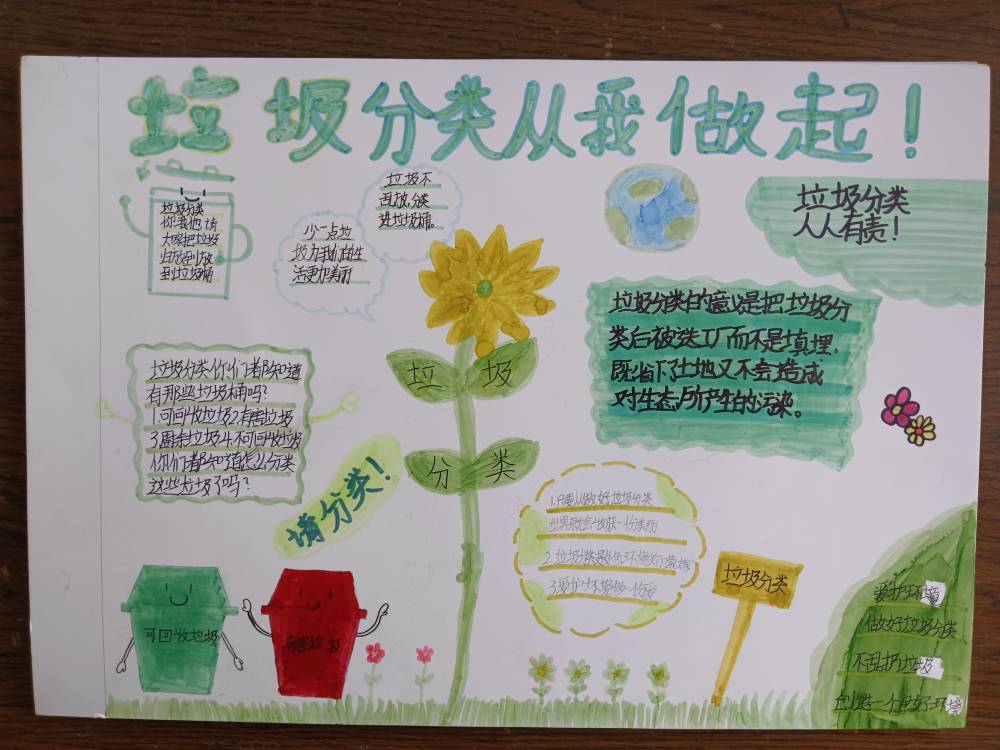 垃圾分类从我做起！
垃圾分类
你我他请
大家把垃圾
到垃圾桶
垃圾不
进垃圾桶。
少一点垃
圾为我们的生
活更加美丽
垃圾分类
人人有责！
垃圾分类的意义是把垃圾分
类后被送工厂而不是填埋，
既省下了土地又不会造成
对生态所产生的污染。
垃圾分类你们都知道
有那些垃圾桶吗？
1.可回收垃圾2.有害垃圾
3.厨余垃圾4.不可回收垃圾
你们都知道怎么分类
这些垃圾了吗？
垃圾
分类
请分类！
1.只要人人做好垃圾分类
世界就会
2.垃圾分类
3.爱护环境
垃圾分类
可回收垃圾
有害垃圾
爱护环境
做好垃圾分类
不乱扔垃圾
创造一个美好环境